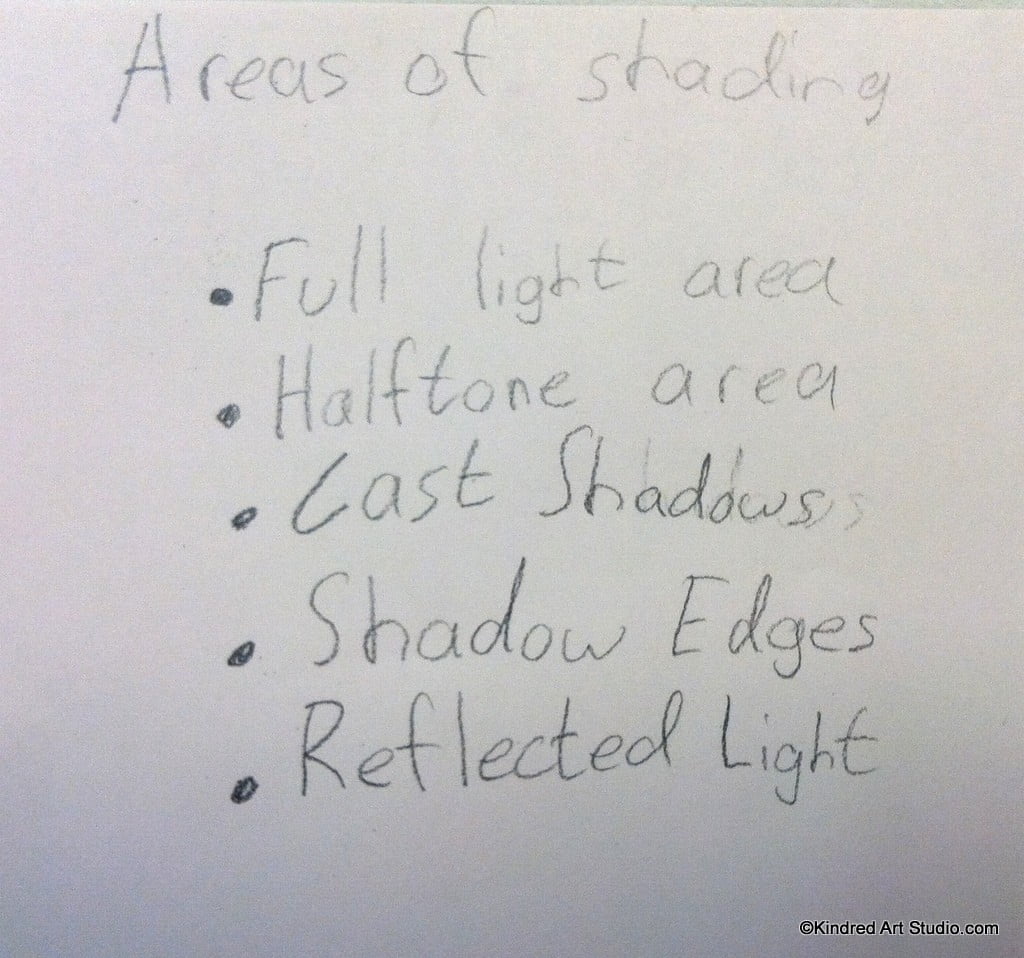 Areas of shading
• Full light area
• Halftone area
• Cast Shadows
• Shadow Edges
• Reflected Light
©Kindred Art Studio.com